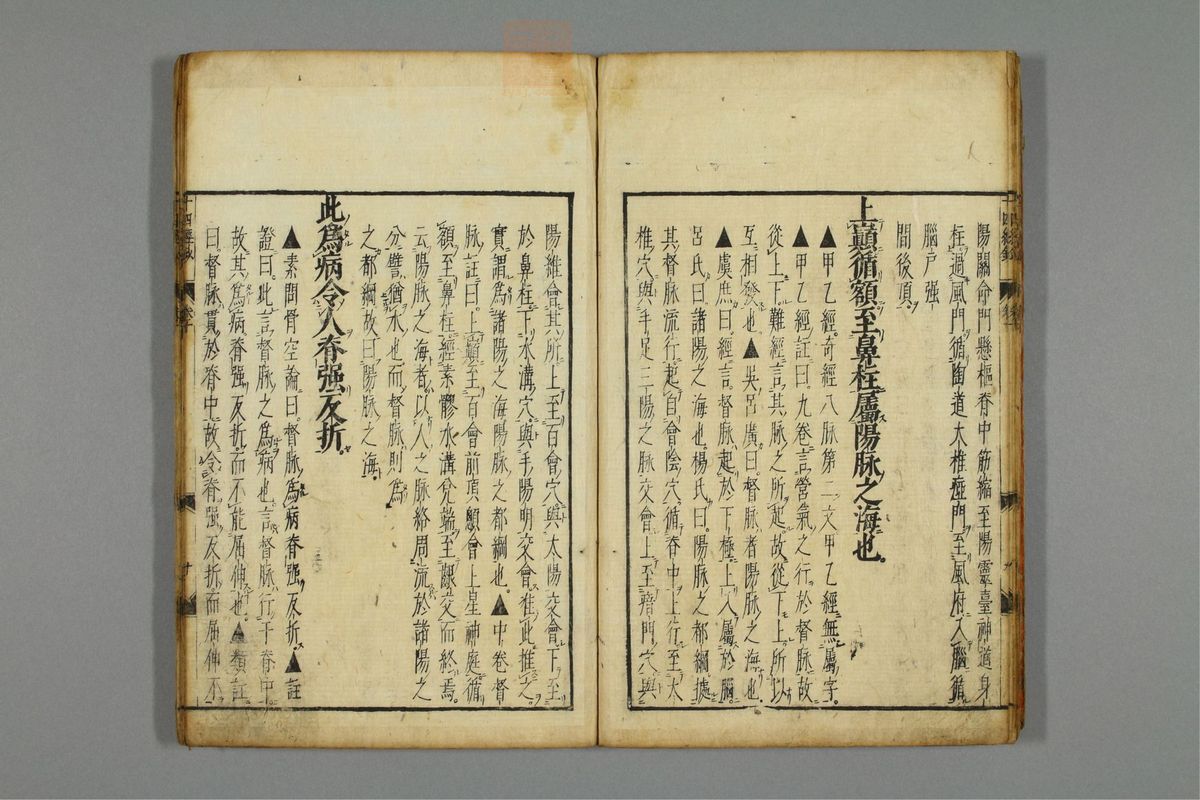 陽關命門懸樞脊中筋縮至陽靈臺神道身
柱過風門循陶道大椎瘂門至風府入腦循
腦戶強
間後頂
上巔循額至鼻柱屬陽脉之海也
▲甲乙經奇經八脉第二文甲乙經無屬字
▲甲乙經註曰九卷言營氣之行於督脉故
從上下難經言其脉之所起故從下上所以
互相發也▲吳呂廣曰督脉者陽脉之海也
▲虞庶曰經言督脉起於下極上入屬於腦
呂氏曰諸陽之海也楊氏曰陽脉之都綱據
其督脉流行起自會陰穴循脊中上行至大
椎穴與手足三陽之脉交會上至瘖門穴與
陽維會其所上至百會穴與太陽交會下至
於鼻柱下水溝穴與手陽明交會准此推之
實謂為諸陽之海陽脉之都綱也▲中卷督
脉註曰上巔至百會前頂顖會上星神庭循
額至鼻柱經素髎水溝兌端至齦交而終焉
云陽脉之海者以人之脉絡周流於諸陽之
分譬猶水也而督脉則為
之都綱故曰陽脉之海
此為病令人脊强反折
▲素問骨空論曰督脉為病脊强反折▲註
證曰此言督脉之為病也言督脉行于脊中
故其為病脊强反折而不能屈伸也▲類註
曰督脉貫於脊中故令脊强反折而屈伸不